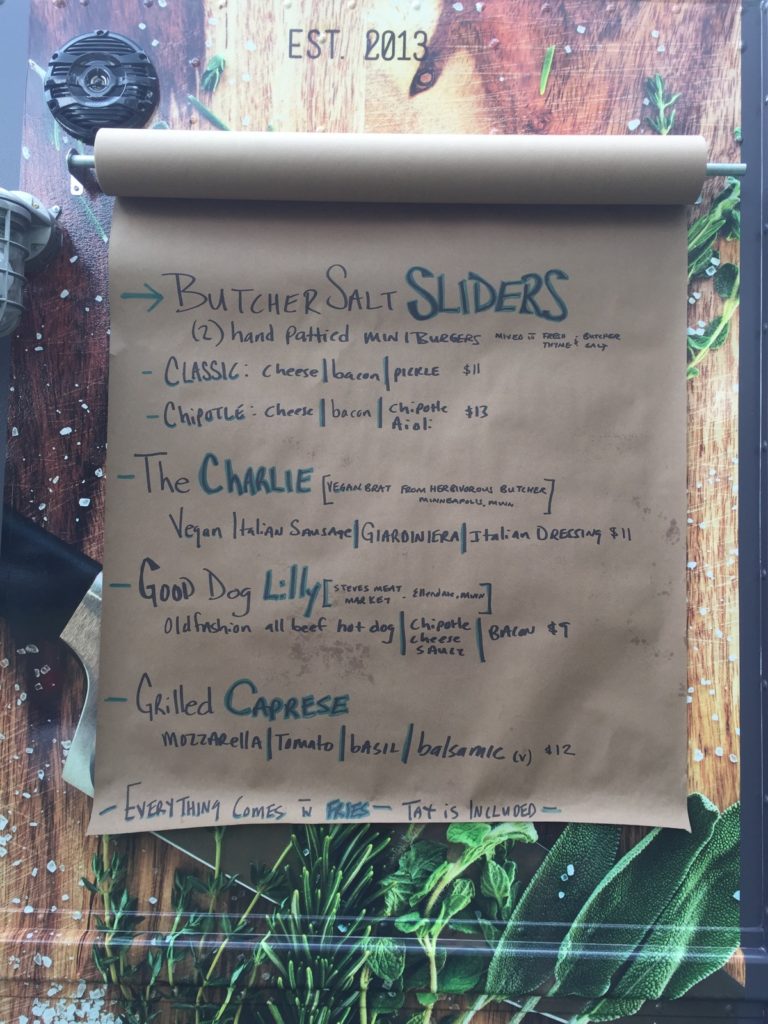 EST. 2013
→ BUTCHER SALT SLIDERS
(2) hand pattied MINI BURGERS MIXED w FRESH THYME & BUTCHER SALT
- CLASSIC: cheese | bacon | PICKLE $11
- CHIPOTLE: cheese | bacon | Chipotle Aioli $13
- The CHARLIE [VEGAN BRAT FROM HERBIVOROUS BUTCHER MINNEAPOLIS, MINN]
Vegan Italian Sausage | GIARDINIERA | Italian DRESSING $11
- GOOD Dog Lilly [STEVES MEAT MARKET - Ellendale, MINN]
Old fashion all beef hot dog | Chipotle cheese SAUCE | BACON $9
- Grilled CAPRESE
MOZZARELLA | TOMATO | BASIL | balsamic (v) $12
- EVERYTHING COMES w FRIES - TAX iS INCLUDED -